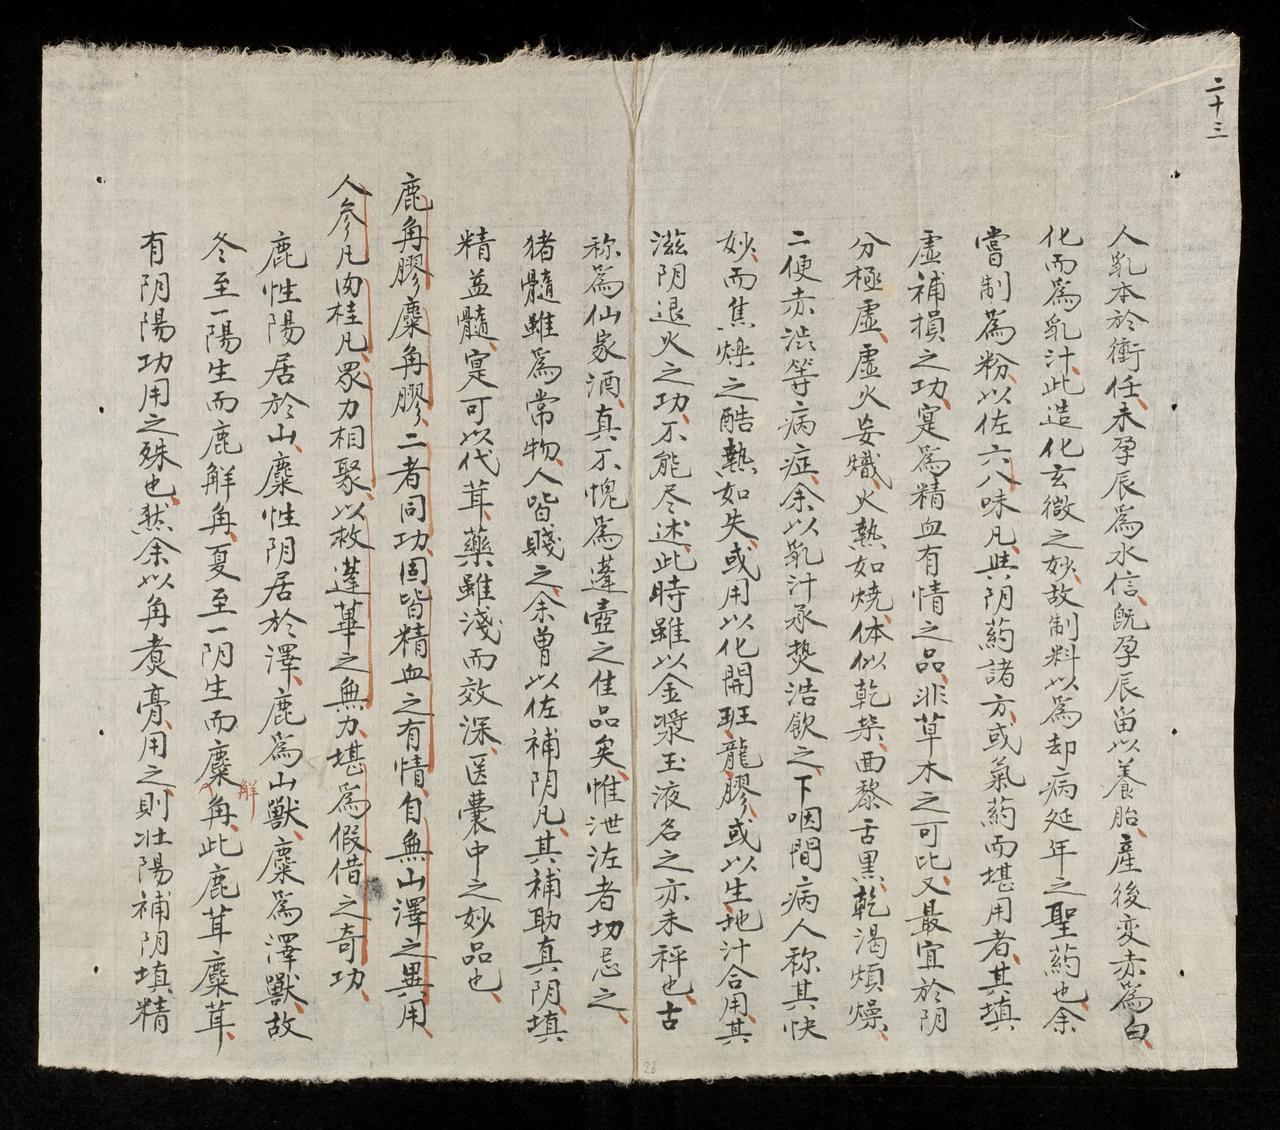 二十三
人乳本於衝任、未孕辰為水信、既孕辰留以養胎、產後变赤為白、
化而為乳汁、此造化玄微之妙、故制料以為却病延年之聖药也、余
嘗制為粉、以佐六八味凡、與阴药諸方、或氣药而堪用者、其填
虛補損之功、寔為精血有情之品、非草木之可比、又最宜於阴
分極虛、虛火妄熾、火熱如燒、体似乾柴、面黎舌黑、乾渴煩燥、
二便赤澁等病症、余以乳汁承热浩飲之、下咽間病人称其快
妙、而焦燥之酷熱如失、或用以化開班龍膠、或以生地汁合用、其
滋阴退火之功、不能尽述、此時雖以金漿玉液名之亦未秤也、古
称為仙家酒、真不愧為蓬壺之佳品矣、惟泄泻者切忌之、
猪髓雖為常物、人皆賤之、余曾以佐補阴凡、其補助真阴、填
精益髓、寔可以代茸、藥雖淺而效深、医囊中之妙品也、
鹿角膠麋角膠、二者同功、固皆精血之有情、自無山澤之異用、
人參凡肉桂凡、眾力相聚、以救蓬蓽之無力、堪為假借之奇功、
鹿性陽居於山、麋性阴居於澤、鹿為山獸、麋為澤獸、故
冬至一陽生而鹿解角、夏至一阴生而麋解角、此鹿茸麋茸、
有阴陽功用之殊也、然余以角煑膏、用之則壮陽補阴、填精
26